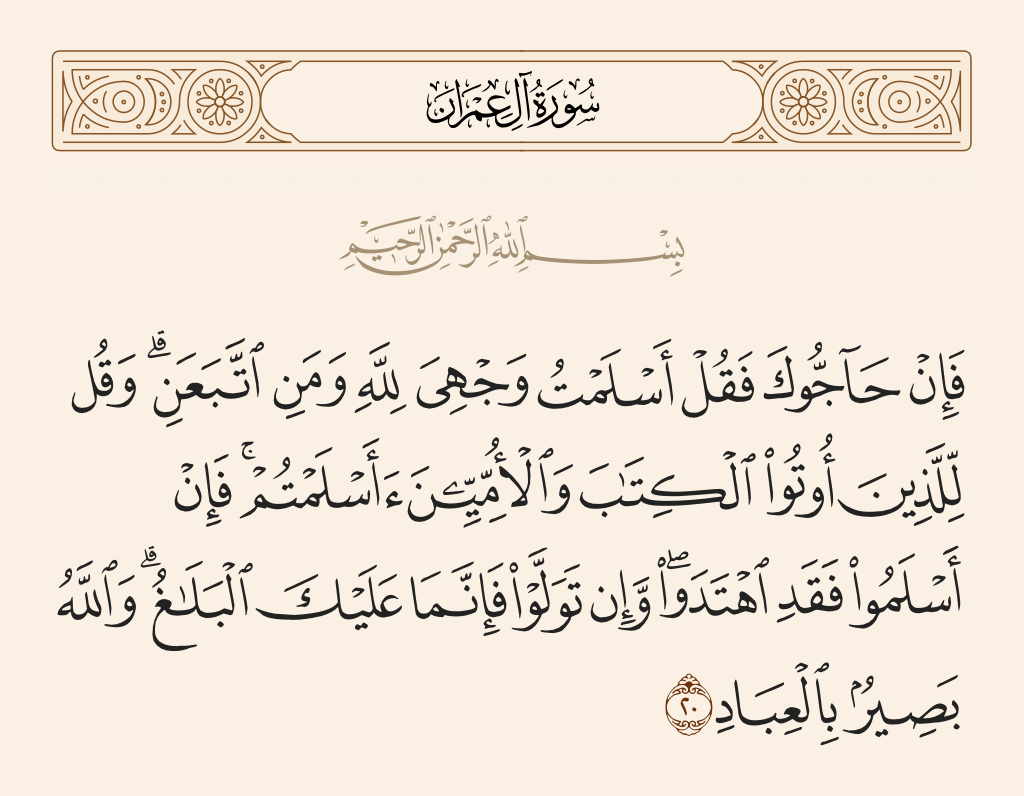 سُورَةُ آلِ عِمْرَان
بِسْمِ ٱللَّهِ ٱلرَّحْمَٰنِ ٱلرَّحِيمِ
فَإِنْ حَآجُّوكَ فَقُلْ أَسْلَمْتُ وَجْهِىَ لِلَّهِ وَمَنِ ٱتَّبَعَنِ ۗ وَقُل
لِّلَّذِينَ أُوتُوا۟ ٱلْكِتَٰبَ وَٱلْأُمِّيِّـۧنَ ءَأَسْلَمْتُمْ ۚ فَإِنْ
أَسْلَمُوا۟ فَقَدِ ٱهْتَدَوا۟ ۖ وَّإِن تَوَلَّوْا۟ فَإِنَّمَا عَلَيْكَ ٱلْبَلَٰغُ ۗ وَٱللَّهُ
بَصِيرٌۢ بِٱلْعِبَادِ ٢٠